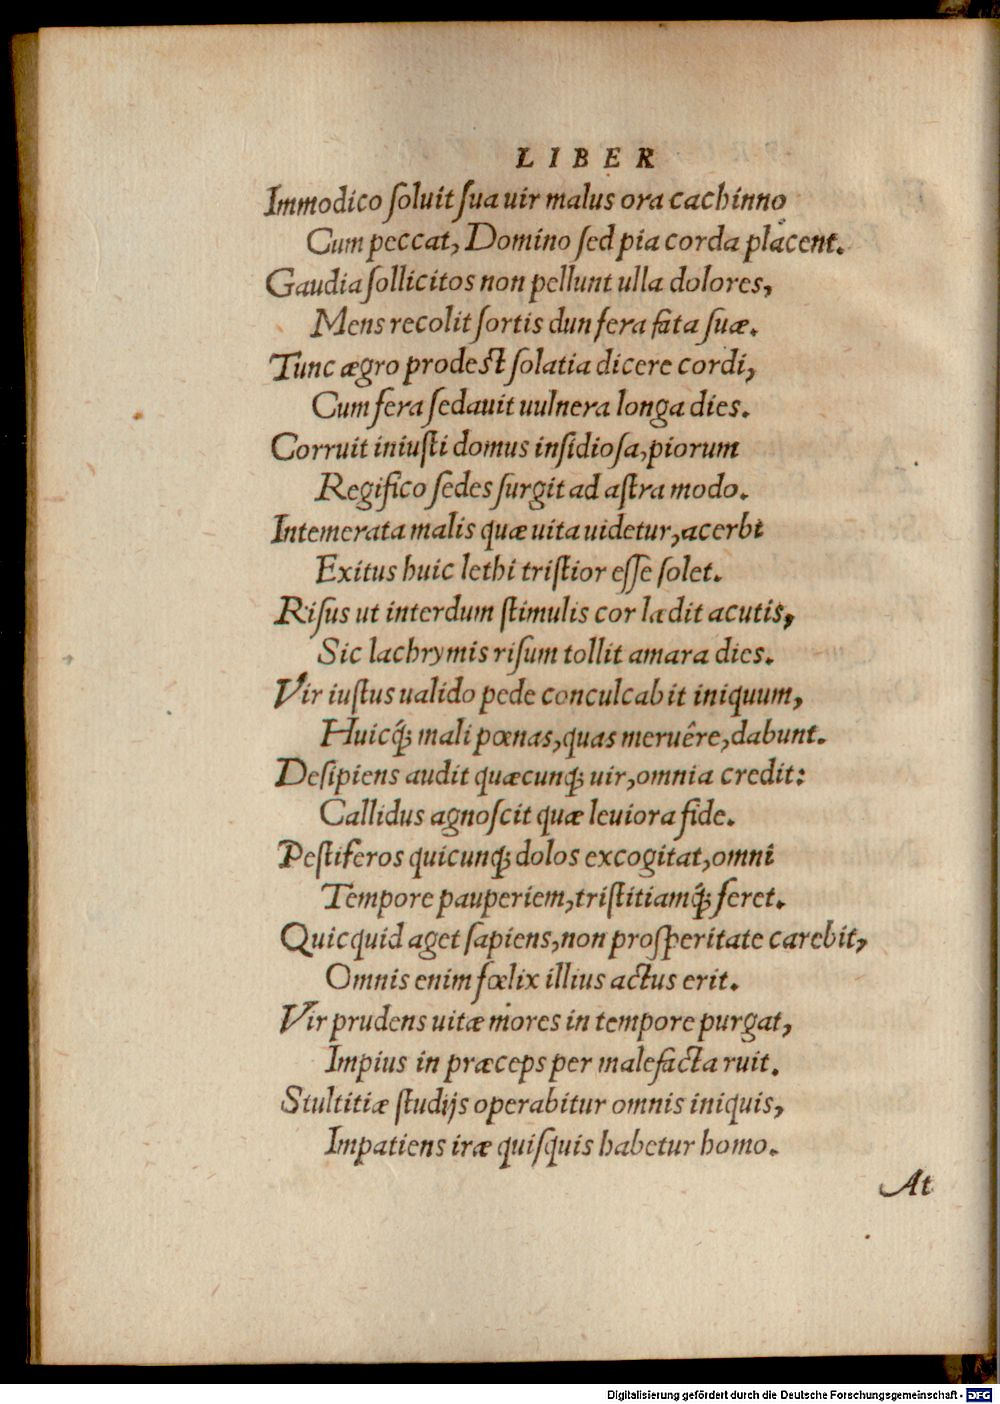 LIBER
Immodico ſoluit ſua uir malus ora cachinno
Cum peccat, Domino ſed pia corda placent.
Gaudia ſollicitos non pellunt ulla dolores,
Mens recolit ſortis dun fera fata ſuæ.
Tunc ægro prodeſt ſolatia dicere cordi,
Cum fera ſedauit uulnera longa dies.
Corruit iniuſti domus inſidioſa, piorum
Regifico ſedes ſurgit ad aſtra modo.
Intemerata malis quæ uita uidetur, acerbi
Exitus huic lethi triſtior eſſe ſolet.
Riſus ut interdum ſtimulis cor ladit acutis,
Sic lachrymis riſum tollit amara dies.
Vir iuſtus ualido pede conculcabit iniquum,
Huicq́; mali pœnas, quas meruêre, dabunt.
Deſipiens audit quæcunq; uir, omnia credit:
Callidus agnoſcit quæ leuiora fide.
Peſtiferos quicunq; dolos excogitat, omni
Tempore pauperiem, triſtitiamq́; feret.
Quicquid aget ſapiens, non proſperitate carebit,
Omnis enim fœlix illius actus erit.
Vir prudens uitæ mores in tempore purgat,
Impius in præceps per malefacta ruit.
Stultitiæ ſtudijs operabitur omnis iniquis,
Impatiens iræ quiſquis habetur homo.
At
Digitalisierung gefördert durch die Deutsche Forschungsgemeinschaft - DFG